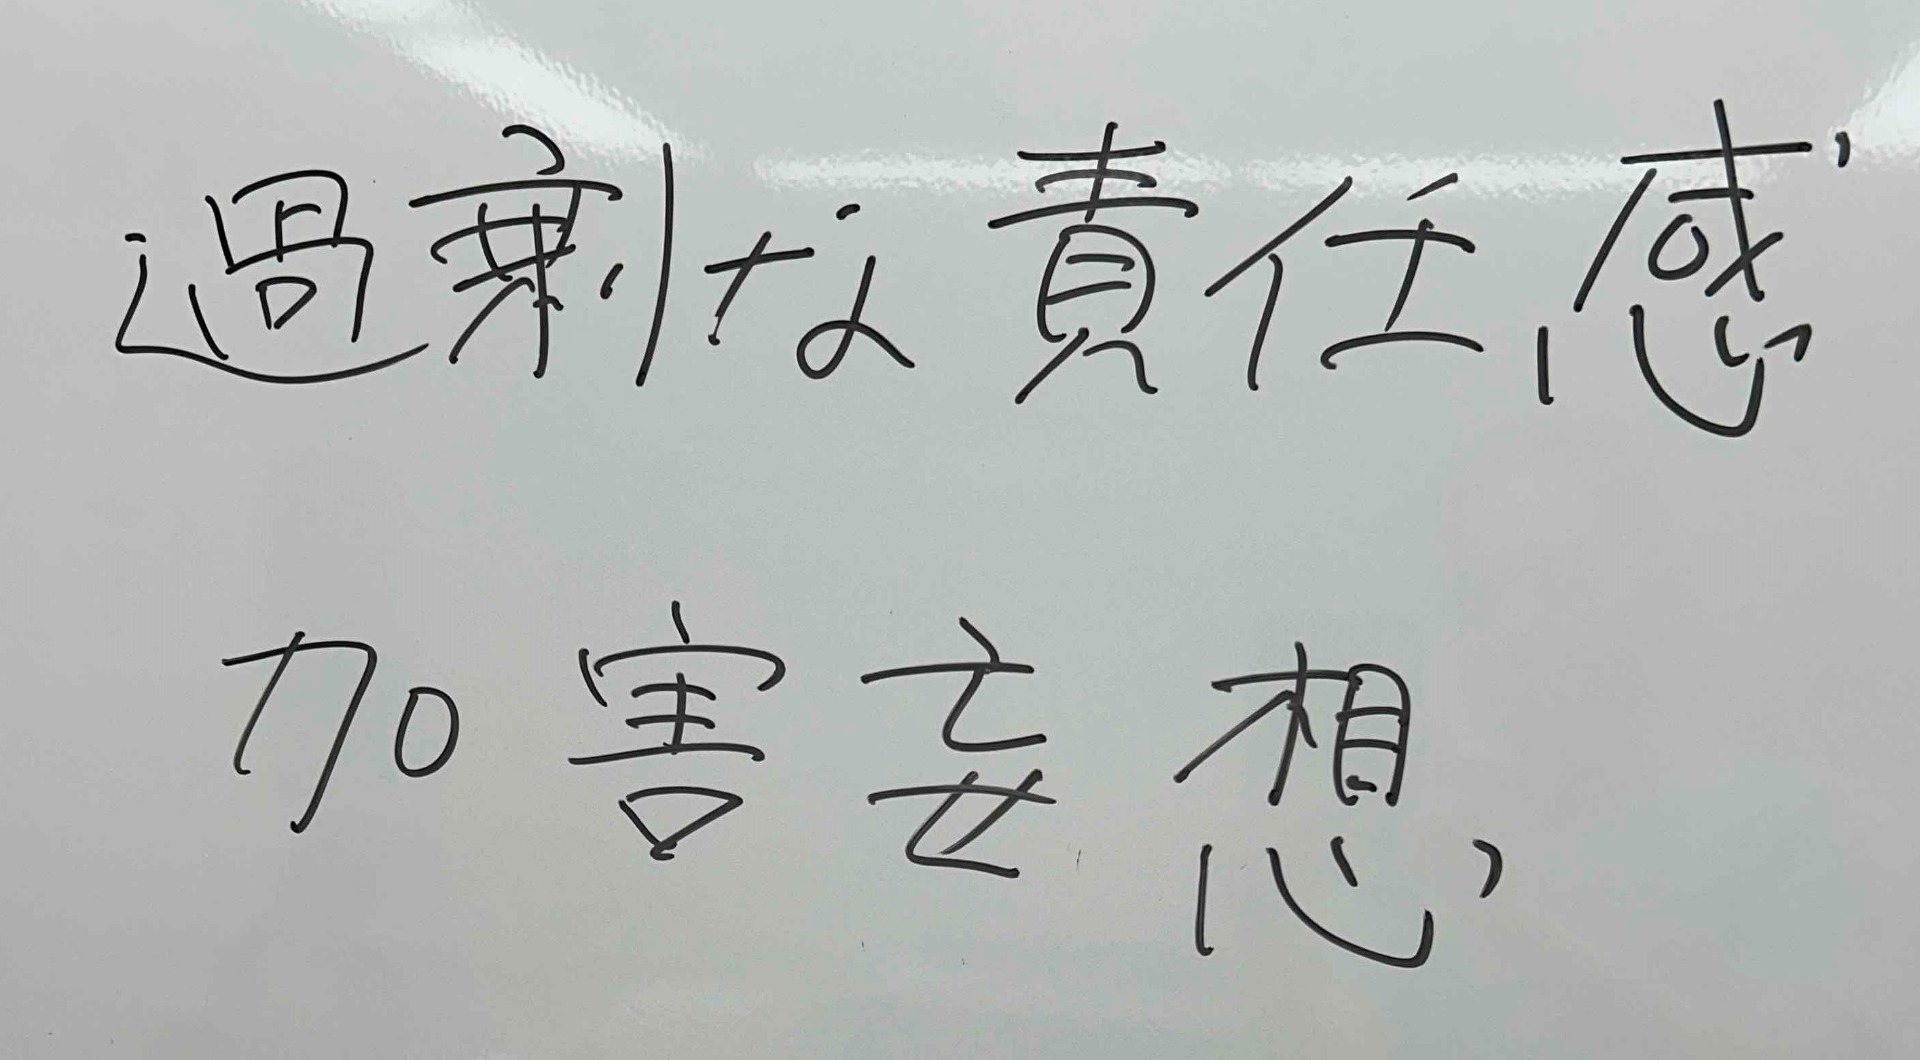 過剰な責任感
加害妄想